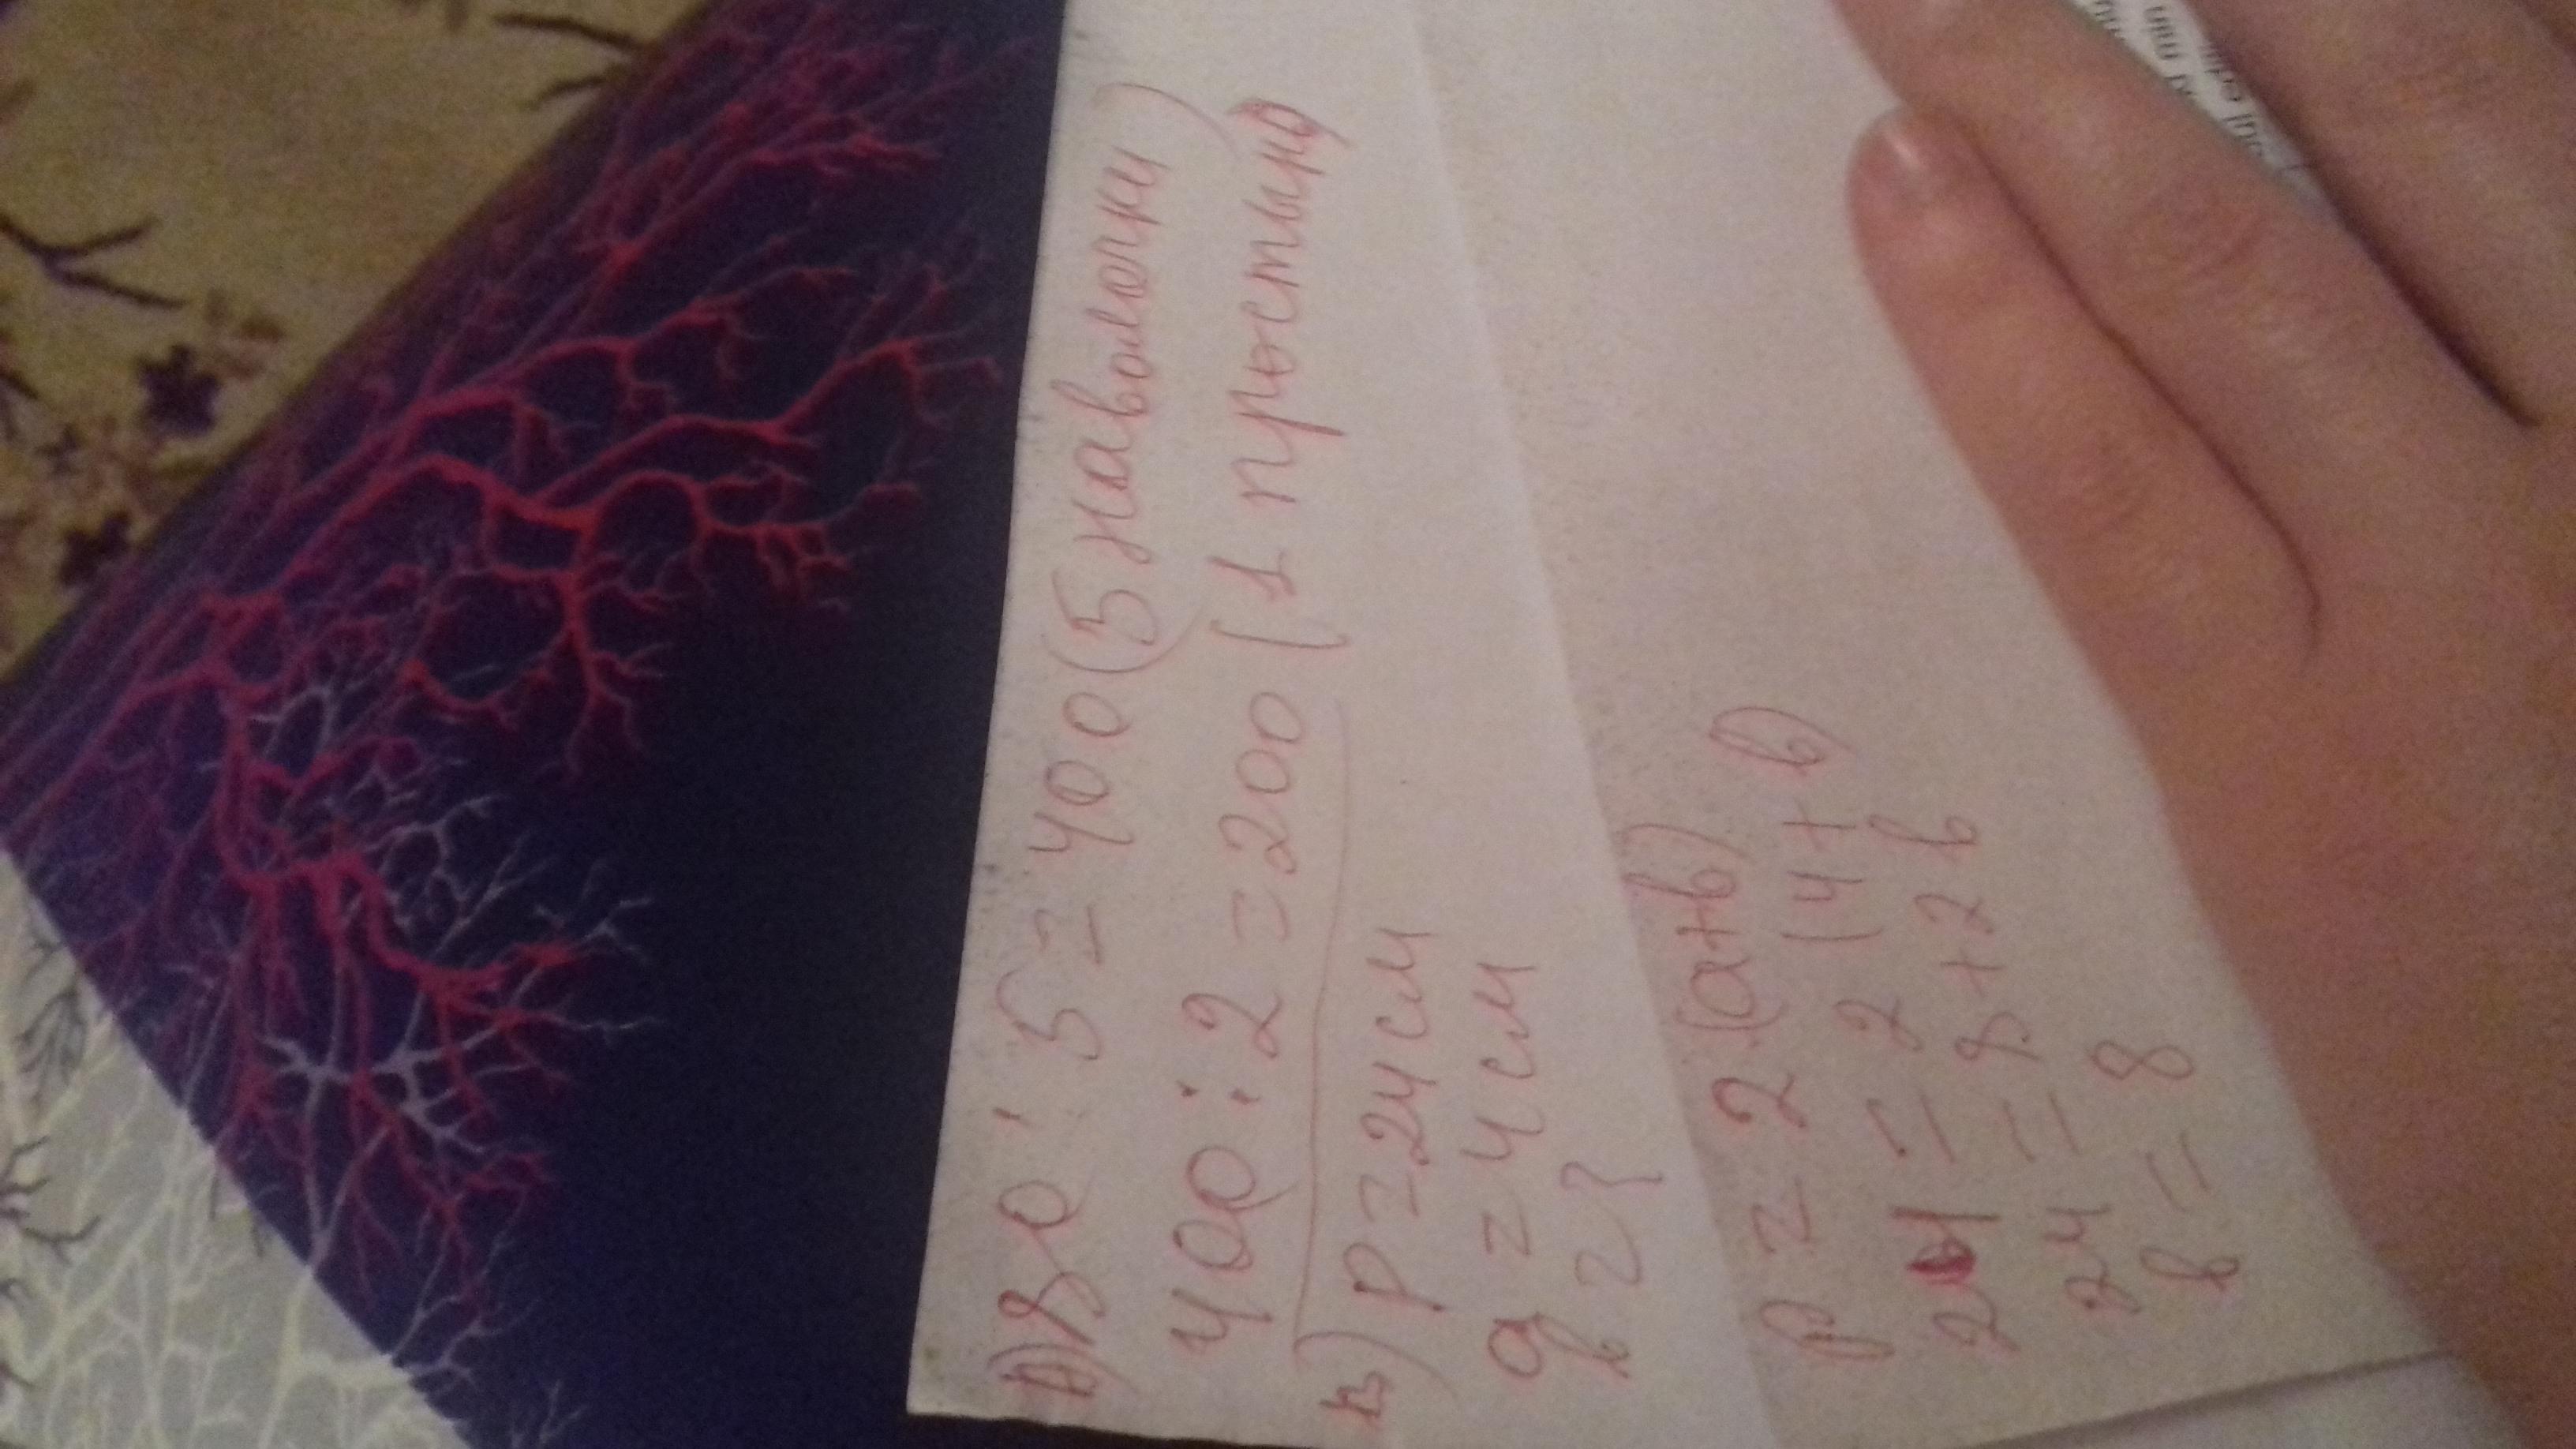 А) 80 · 5 = 400 (5 наволочки)
400 : 2 = 200 (1 простынь)
в) P = 24 см
a = 4 см
в = ?
P = 2 (а+в)
24 = 2 (4 + в)
24 = 8 + 2 в
в = 8